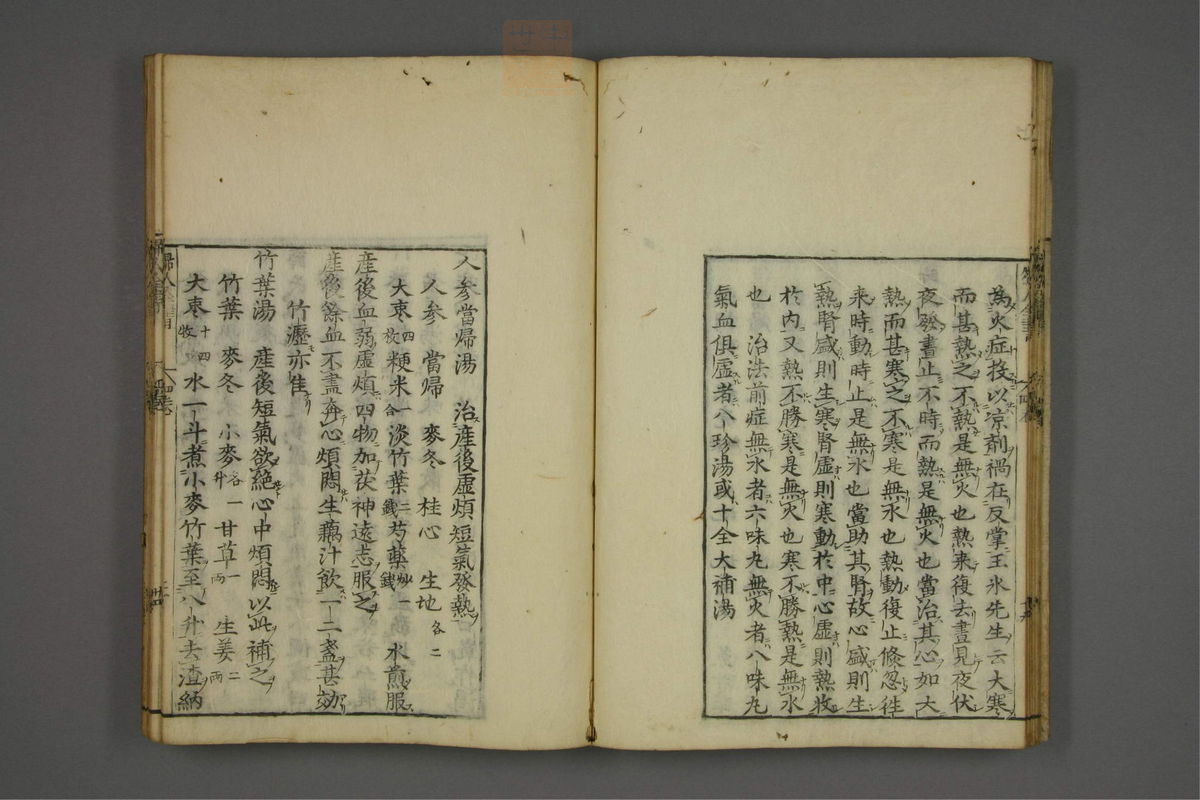 為火症投以凉劑禍在反掌王氷先生云大寒
而甚熱之不熱是無火也熱来復去晝見夜伏
夜發晝止不時而熱是無火也當治其心如大
熱而甚寒之不寒是無水也熱動復止倐忽徃
来時動時止是無水也當助其腎故心盛則生
熱腎盛則生寒腎虛則寒動於中心虛則熱收
於内又熱不勝寒是無火也寒不勝熱是無水
也 治法前症無水者六味丸無火者八味丸
氣血俱虛者八珍湯或十全大補湯
人参當歸湯 治產後虛煩短氣發熱
人参 當歸 麥冬 桂心 生地各二
大枣四枚 粳米一合 淡竹葉二錢 芍藥炒一錢 水煎服
產後血弱虛煩四物加茯神遠志服之
產後餘血不盡奔心煩悶生藕汁飲一二盞甚効
竹瀝亦隹
竹葉湯 產後短氣欲絶心中煩悶以此補之
竹葉 麥冬 小麥各一升 甘草一兩 生姜二兩
大枣十四枚 水一斗煮小麥竹葉至八升去渣納